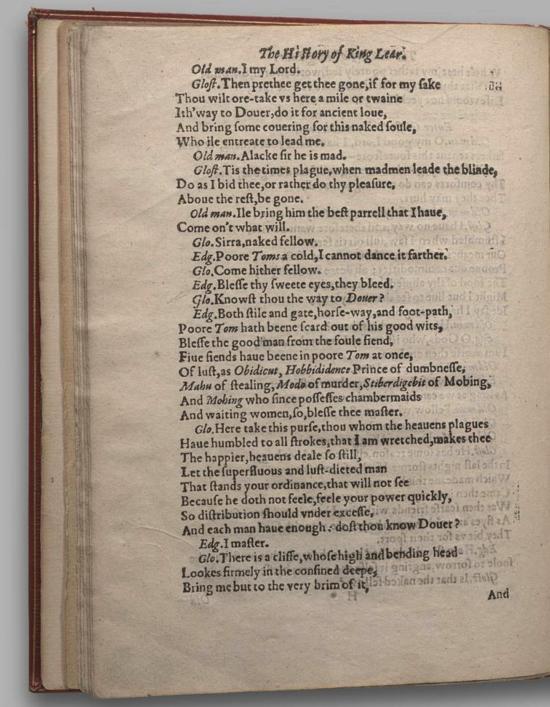 The History of King Lear.
Old man. I my Lord.
Glost. Then prethee get thee gone, if for my sake
Thou wilt ore-take vs here a mile or twaine
Ith'way to Douer, do it for ancient loue,
And bring some couering for this naked soule,
Who ile entreate to lead me.
Old man. Alacke sir he is mad.
Glost. Tis the times plague, when madmen leade the blinde,
Do as I bid thee, or rather do thy pleasure,
Aboue the rest, be gone.
Old man. Ile bring him the best parrell that I haue,
Come on't what will.
Glo. Sirra, naked fellow.
Edg. Poore Toms a cold, I cannot dance it farther.
Glo. Come hither fellow.
Edg. Blesse thy sweete eyes, they bleed.
Glo. Knowst thou the way to Douer?
Edg. Both stile and gate, horse-way, and foot-path,
Poore Tom hath beene scard out of his good wits,
Blesse the good man from the foule fiend,
Fiue fiends haue beene in poore Tom at once,
Of lust, as Obidicut, Hobbididence Prince of dumbnesse,
Mahu of stealing, Modo of murder, Stiberdigebit of Mobing,
And Mohing who since possesses chambermaids
And waiting women, so, blesse thee master.
Glo. Here take this purse, thou whom the heauens plagues
Haue humbled to all strokes, that I am wretched, makes thee
The happier, heauens deale so still,
Let the superfluous and lust-dieted man
That stands your ordinance, that will not see
Because he doth not feele, feele your power quickly,
So distribution should vnder excesse,
And each man haue enough: dost thou know Douer?
Edg. I master.
Glo. There is a cliffe, whose high and bending head
Lookes firmely in the confined deepe,
Bring me but to the very brim of it,
And